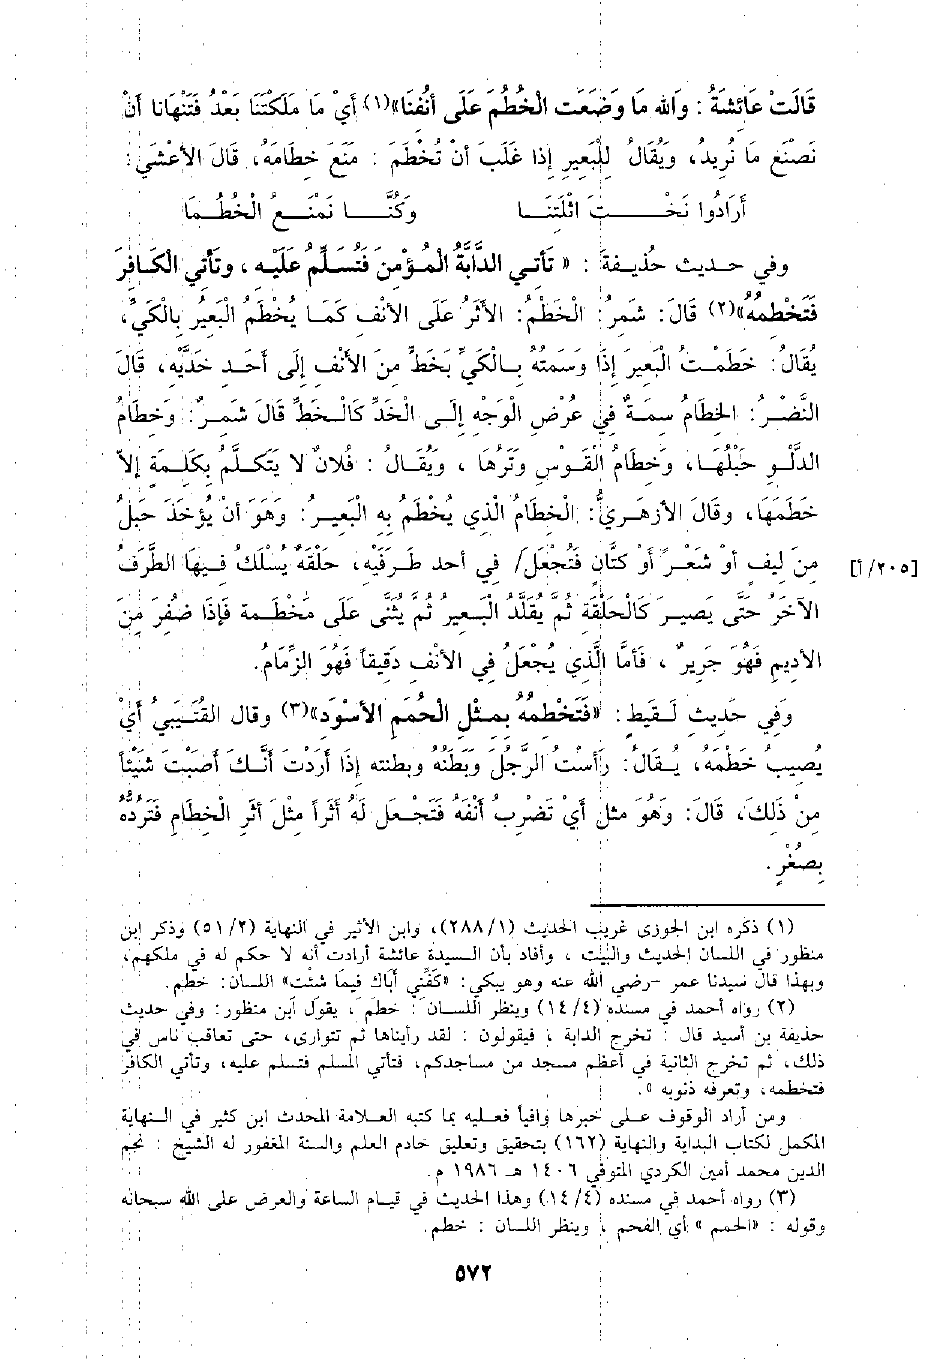 قَالَتْ عَائِشَةُ : وَالله مَا وَضَعَت الْخُطُمَ عَلَى أنُفنَا»(١) أيْ مَا مَلَكَتْنَا بَعْدُ فَتَنْهَانا أنْ
نَصْنَع مَا نُريدُ، وَيُقَالُ لِلْبَعِير إذا غَلَبَ أنْ تُخْطَمَ : مَنَعَ خطَامَهُ، قَالَ الأعْشَى:
أرَادُوا نَحْـــتَ اثْلَتنَـــا وَكُنَّـــا نَمْنَـــعُ الْخُطُـمَا
وفي حـديث حُذَيفَةَ : « تَأتـي الدَّابَّةُ الْمُؤْمنَ فَتُسَلِّمُ عَلَيْـه ، وتَأتي الْكَـافِرَ
فَتَخْطمُهُ»(٢) قَالَ: شَمرُ: الْخَطْمُ: الأثَرُ عَلَى الأنْف كَمَـا يُخْطَمُ الْبَعيرُ بالْكَيِّ،
يُقَالُ: خَطَمْـتُ الْبَعيرَ إذَا وَسَمتُهُ بـالْكَيِّ بَخَطٍّ منَ الأَنْف إلَى أحَـد خَدَّيْه، قَالَ
النَّضْـرُ: الخطَامُ سمَـةٌ في عُرْض الْوَجْه إلَـى الْخَدِّ كَالْـخَطِّ قَالَ شَمرٌ: وَخطَامُ
الدَّلْـو حَبْلُهَـا، وَخطَامُ الْقَوْس وَتَرُهَا ، ويُقَـالُ : فُلانٌ لا يَتَكـلَّمُ بكَلمَة إلاَّ
خَطَمَهَا، وقَالَ الأزْهَـريُّ: الْخطَامُ الَّذي يُخْطَمُ به الْبَعيـرُ: وَهوَ أنْ يُؤْخَذَ حَبلٌ
منَ ليف أوْ شَعْـرٍ أوْ كتَّان فَتُجْعَلَ/ في أحد طَـرَفَيْه، حَلْقَةٌ يُسْلَكُ فـيهَا الطَّرَفُ [٢٠٥/أ]
الآخَرُ حَتَّى يَصيـرَ كَالْحَلْقَة ثُمَّ يُقَلَّدُ الْبَـعيرُ ثُمَّ يُثْنَى عَلَـى مَخْطمـة فَإذَا ضُفرَ مَنَ
الأديم فَهُوَ جَريرٌ ، فَأمَّا الَّذي يُجْعَلُ في الأنْف دَقيقاً فَهُوَ الزِّمَامُ.
وَفي حَديث لَـقيط : «فَتَخْطمُهُ بمـثْل الْحُمَم الأسْوَد»(٣) وقال القُتَيبيُّ أيْ
يُصيبُ خَطْمَهُ، يُـقَالُ: رَأسْتُ الرَّجُلَ وَبَطَنْتُهُ وبطنته إذَا أرَدْتَ أنَّـكَ أصَبْتَ شَيْئاً
منْ ذَلكَ، قَالَ: وَهُوَ مثل أيْ تَضْربُ أنْفَهُ فَتَجْعلَ لَهُ أثَراً مثْلَ أثَر الْخطَام فَتَرُدُّهُ
بِصُغْرٍ .
(١) ذكره ابن الجوزى غريب الحديث (٢٨٨/١)، وابن الأثير في النهاية (٥١/٢) وذكر ابن
منظور في اللسان الحديث والبيت ، وأفاد بأن السيدة عائشة أرادت أنه لا حكم له في ملكهم،
وبهذا قال سيدنا عمر -رضي الله عنه وهو يبكي: «كَفِّني أباك فيما شئْت» اللسان: خطم.
(٢) رواه أحمد في مسنده (١٤/٤) وينظر اللسـان : خطم ، يقول ابن منظور: وفي حديث
حذيفة بن أسيد قال : تخرج الدابة ، فيقولون : لقد رأيناها ثم تتوارى، حتى تعاقب ناس في
ذلك، ثم تخرج الثانية في أعظم مسجد من مساجدكم، فتأتي المسلم فتسلم عليه، وتأتي الكافر
فتخطمه، وتعرفه ذنوبه ».
ومن أراد الوقوف علـى خبرها وافياً فعليه بما كتبه العـلامة المحدث ابن كثير في النهاية
المكمل لكتاب البداية والنهاية (١٦٢) بتحقيق وتعليق خادم العلم والسنة المغفور له الشيخ : نجم
الدين محمد أمين الكردي المتوفي ١٤٠٦ هـ ١٩٨٦ م.
(٣) رواه أحمد في مسنده (١٤/٤) وهذا الحديث في قيـام الساعة والعرض على الله سبحانه
وقوله : «الحمم » أي الفحم ، وينظر اللسان : خطم.
٥٧٢